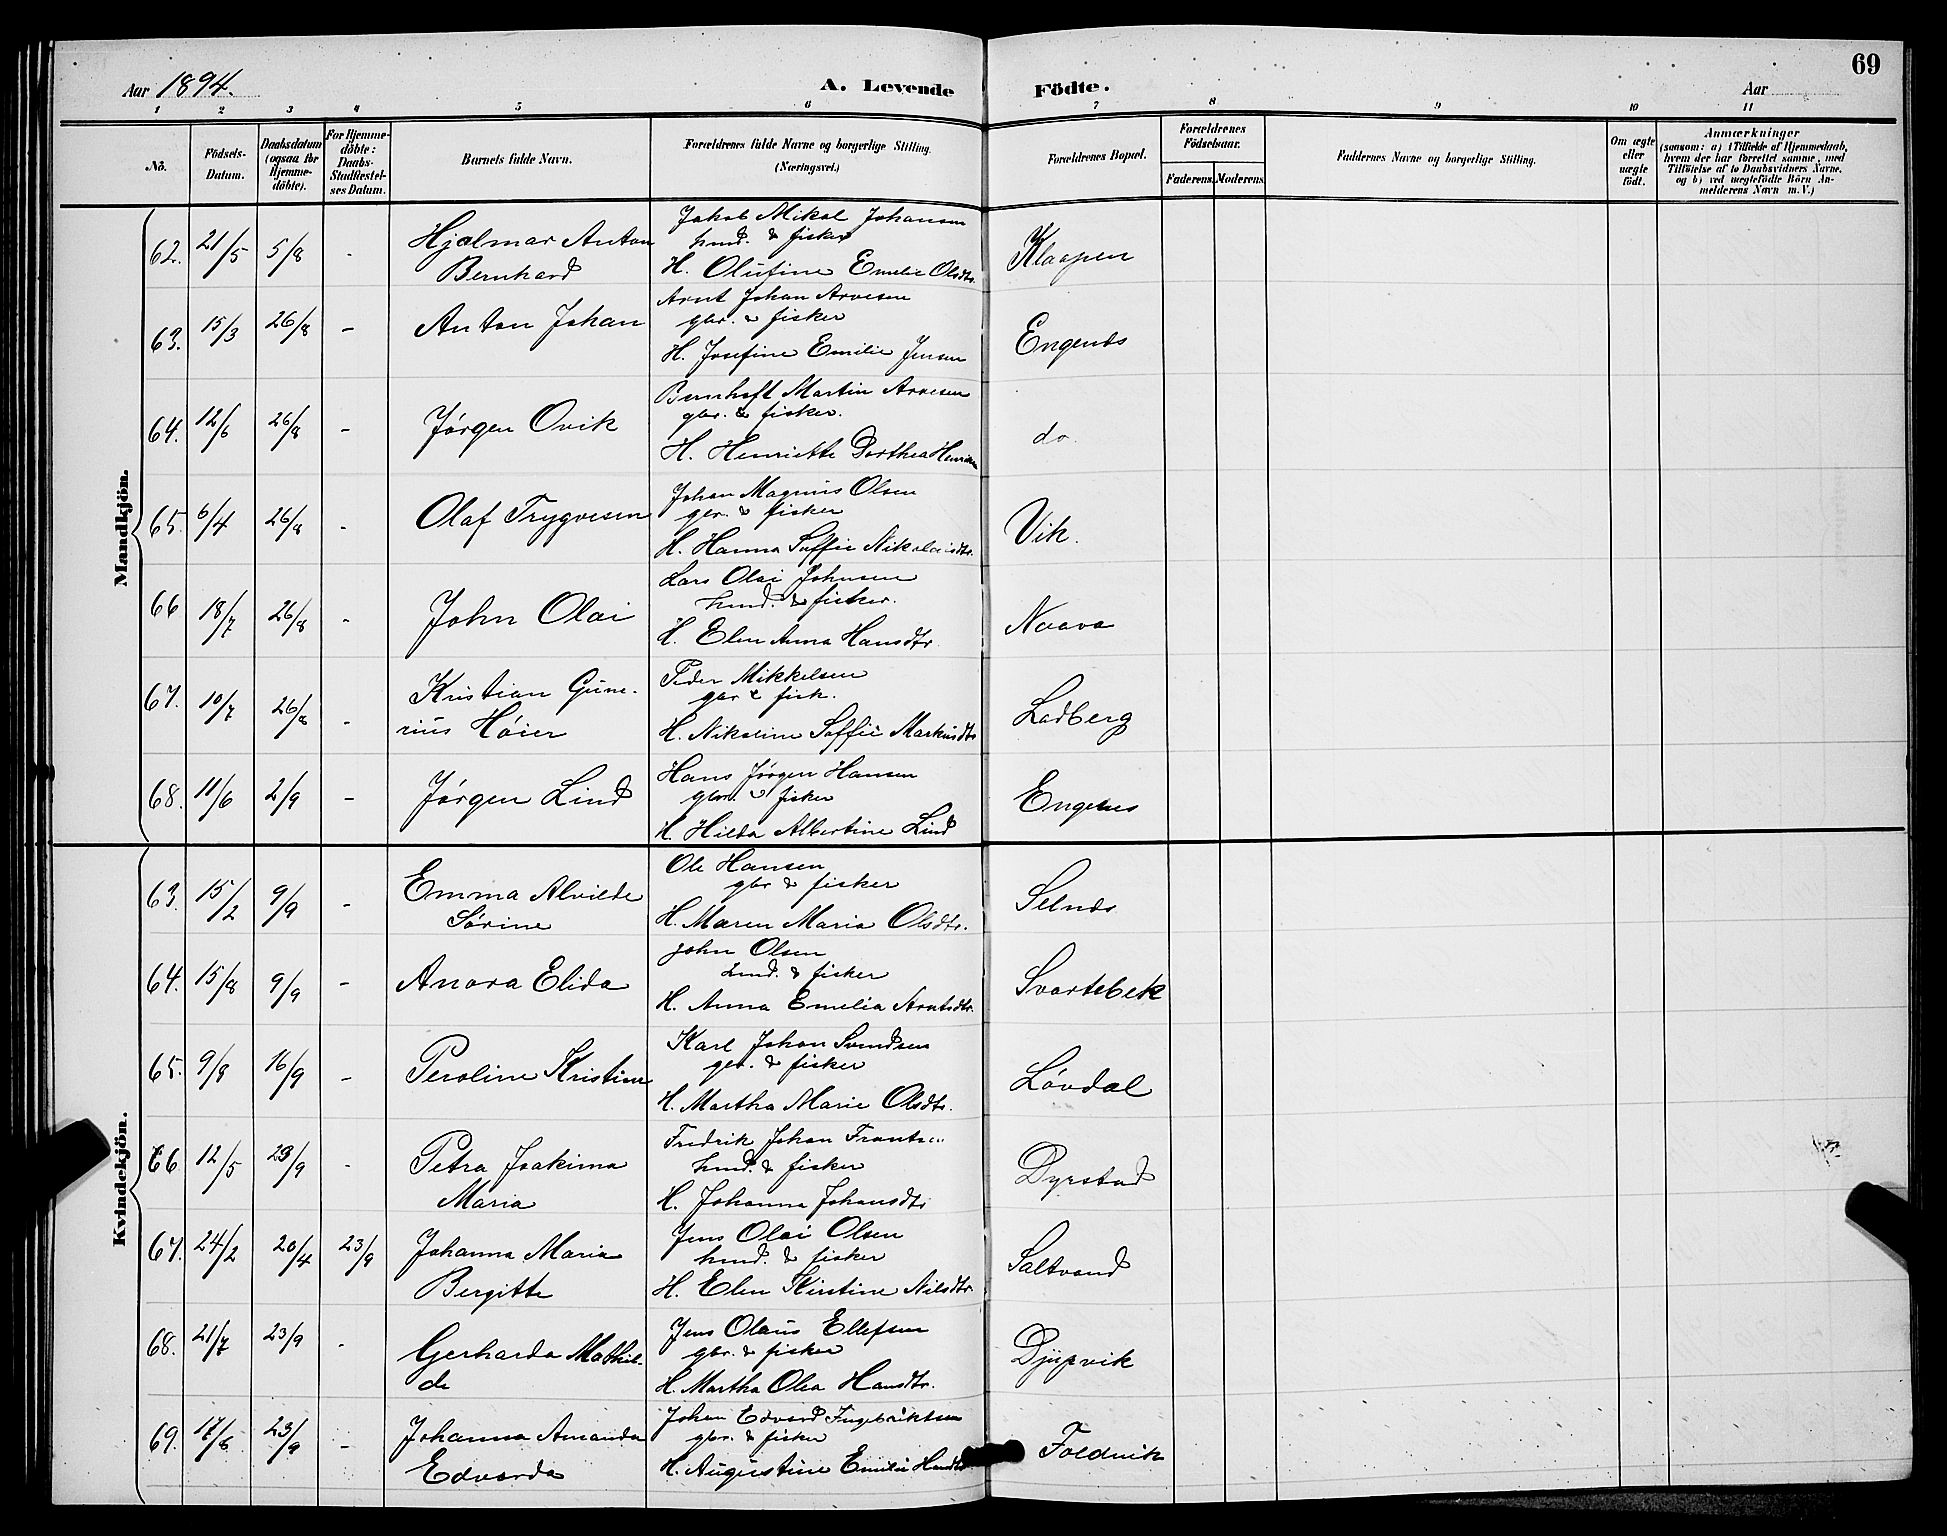 69
Aar 1894.
A. Levende Födte.
Aar
1 2 3 4 5 6 7 8 9 10 11
No.
Födsels-Datum.
Daabsdatum (ogsaa for Hjemme-döbte).
For Hjemme-döbte: Daabs-Stadfæstel-ses Datum.
Barnets fulde Navn.
Forældrenes fulde Navne og borgerlige Stilling.
(Næringsvei.)
Forældrenes Bopæl.
Forældrenes Födselsaar.
Faderens. Moderens.
Faddernes Navne og borgerlige Stilling.
Om ægte eller uægte født.
Anmærkninger
(saasom: a) i Tilfælde af Hjemmedaab,
hvem der har forrettet samme, med
Tilföielse af to Daabsvidners Navne,
og b) ved uægtefödte Börn An-
melderens Navn m. V.)
Mandkjön.
Jakob Mikal Johansen
62. 21/5 5/8 - Hjalmar Anton hmd. & fisker Klaapen
Bernhard H. Olufine Emelie Olsdtr.
Arnt Johan Arvesen
63. 15/3 26/8 - Anton Johan gbr. & fisker Engenæs
H. Josefine Emilie Jensen
Bernhoft Martin Arvesen
64. 12/6 26/8 - Jørgen Ovik gbr. & fisker. do.
H. Henriette Dorthea
Johan Magnus Olsen
65. 6/4 26/8 - Olaf Trygvesen gbr. & fisker Vik.
H. Hanna Soffie Nikolaisdtr.
Lars Olai Johnsen
66 18/7 26/8 - John Olai hmd. & fisker. Naava
H. Elen Anna Hansdtr.
Peder Mikkelsen
67. 10/7 26/8 - Kristian Gune- gbr & fisk. Ladberg
rius Høier H. Nikoline Soffie Markusdtr
Hans Jørgen Hansen
68. 11/6 2/9 - Jørgen Lind gbr. & fisker Engenes
H. Hilda Albertine Lind
Kvindekjön.
Ole Hansen
63. 15/2 9/9 - Emma Alvilde gbr & fisker Selnæs
Sørine H. Maren Maria Olsdtr.
John Olsen
64. 15/8 9/9 - Anora Elida hmd. & fisker Svartebek
H. Anna Emelia Arntsdtr.
Karl Johan Svendsen
65. 9/8 16/9 - Peroline Kristine gbr. & fisker Løvdal
H. Martha Marie Olsdtr.
Fredrik Johan
66 12/5 23/9 - Petra Joakima hmd. & fisker Dyrstad
Maria H. Johanna Johansdtr
Jens Olai Olsen
67. 24/2 20/4 23/9 Johanna Maria hmd. & fisker Saltvand
Bergitte H. Elen Kirstine Nilsdtr.
Jens Olaus Ellefsen
68. 21/7 23/9 - Gerharda Mathil- gbr. & fisker Djupvik
de H. Martha Olea Hansdtr.
Johan Edvard Ingebriktsen
69. 17/8 23/9 - Johanna Amanda gbr. & fisker Foldvik
Edvarda H. Augustine Emilie